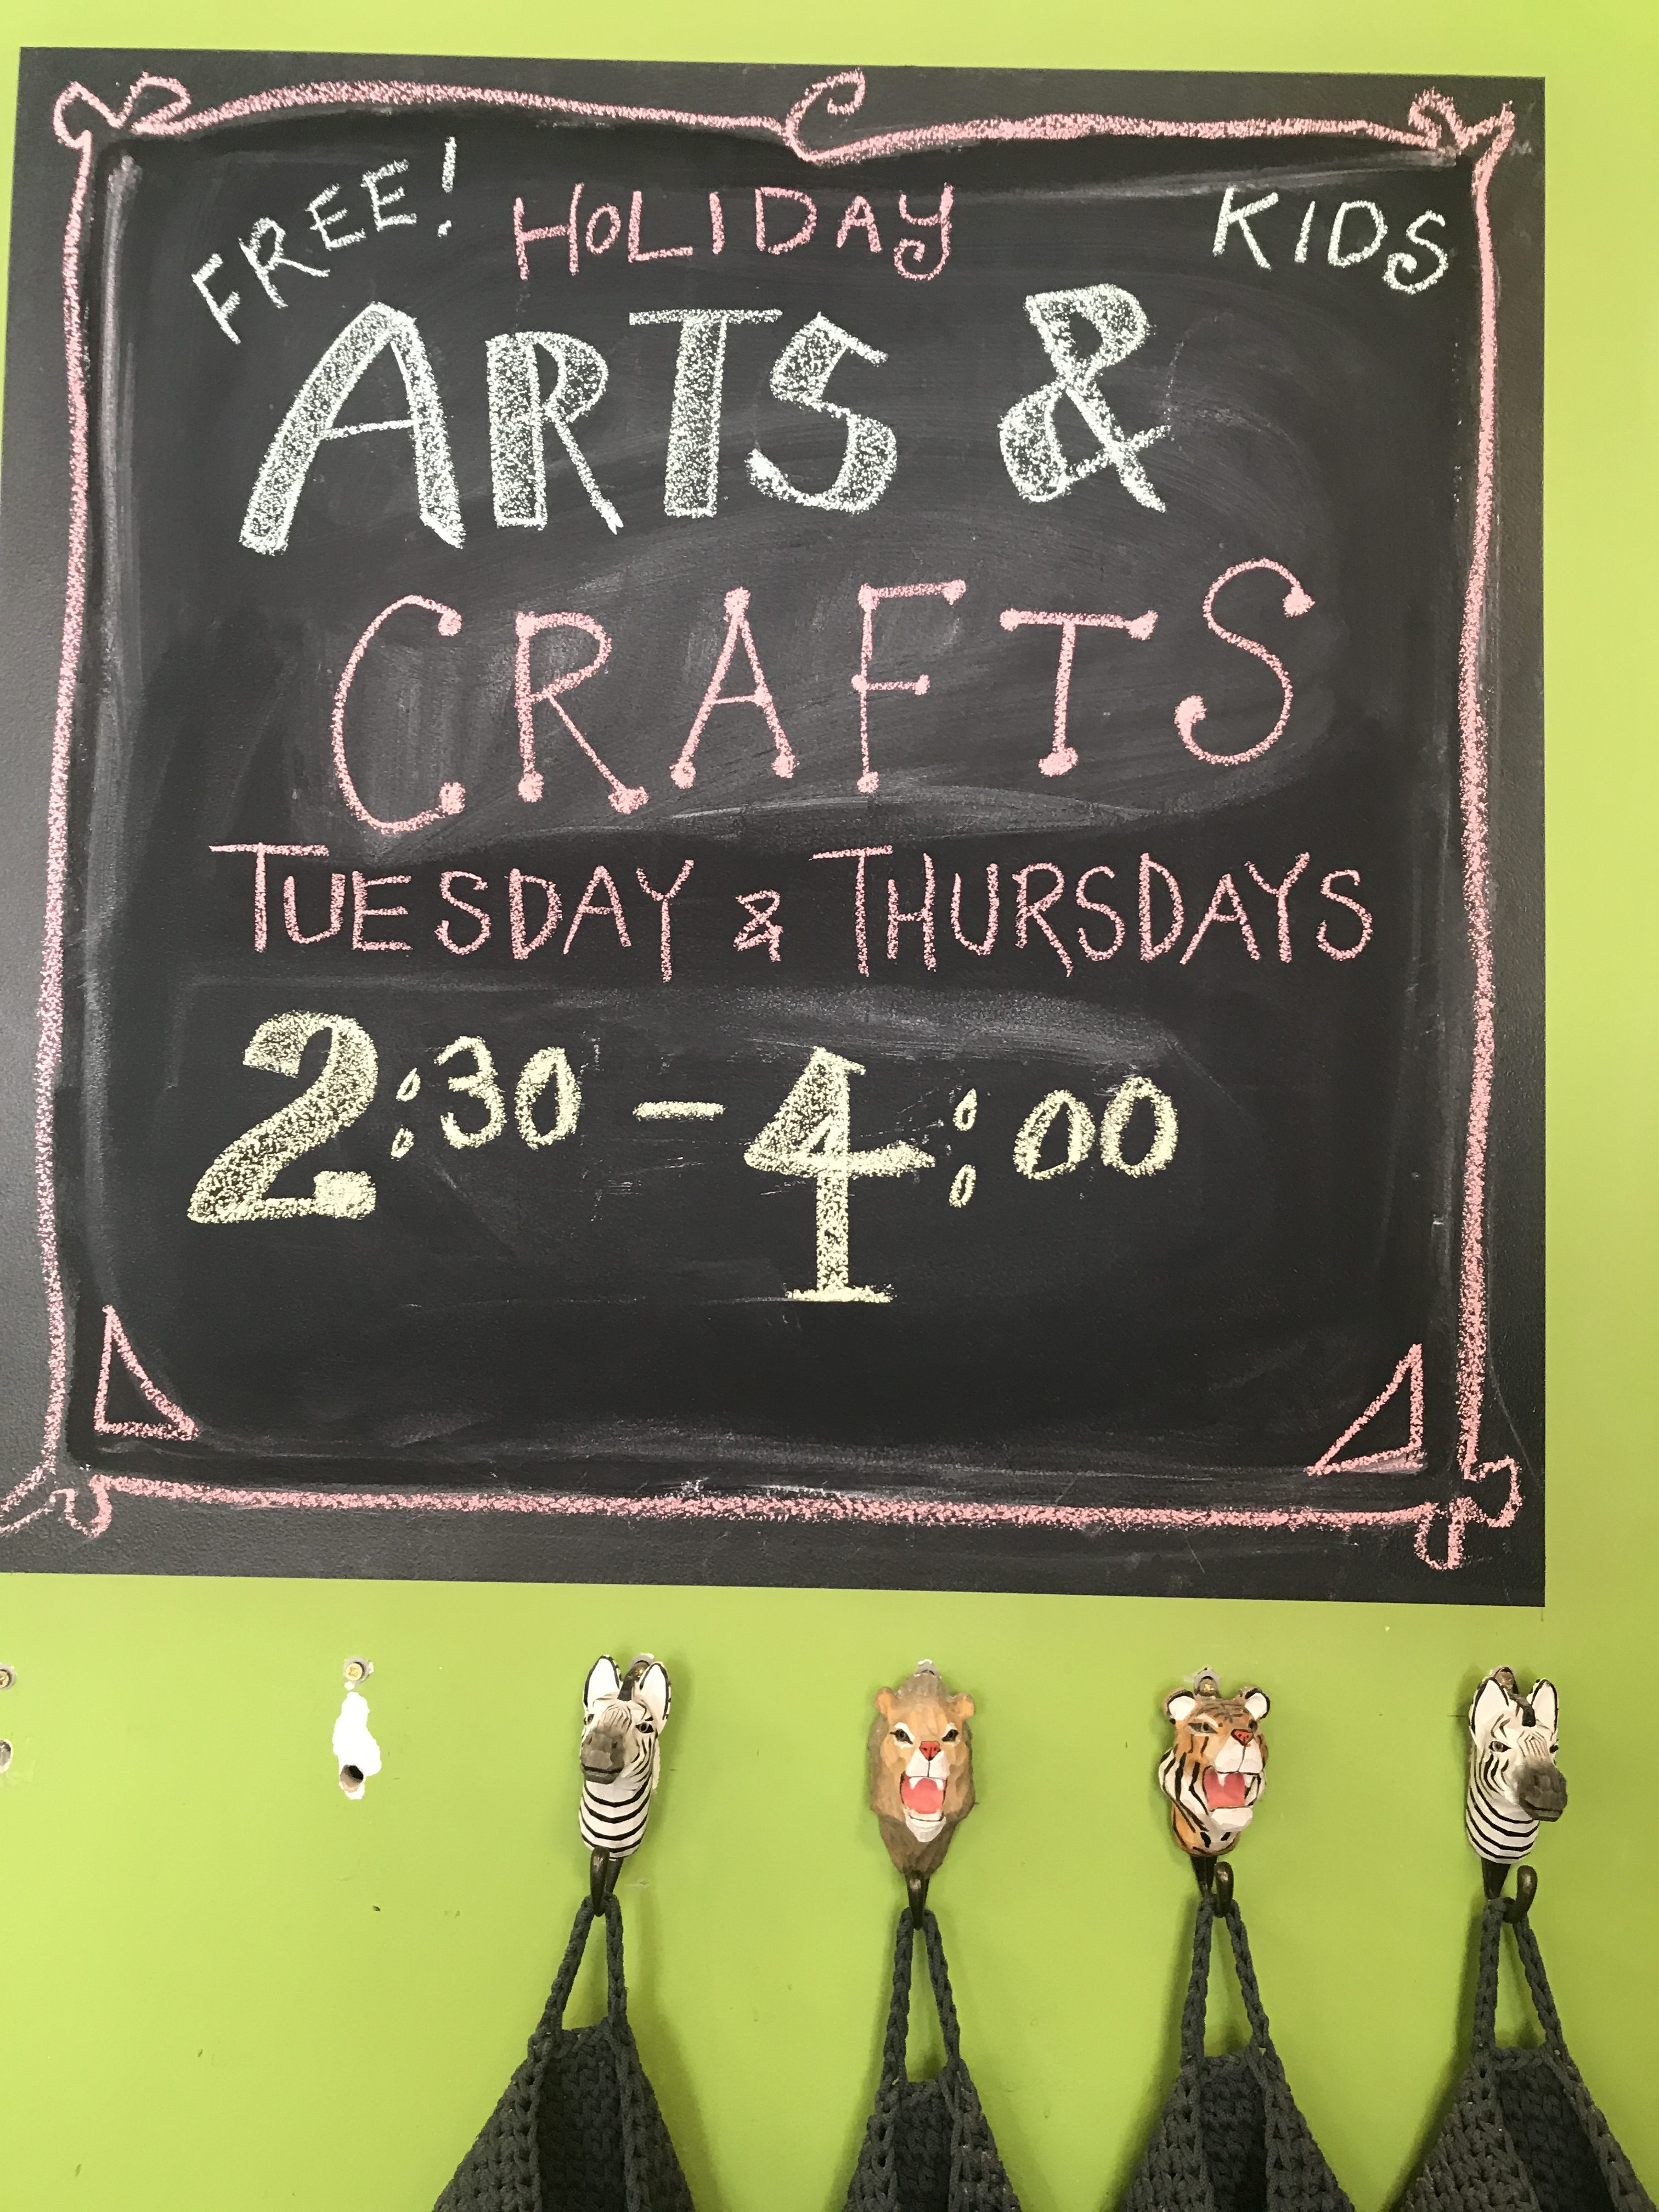 FREE! HOLIDAY KIDS
ARTS &
CRAFTS
TUESDAY & THURSDAYS
2:30 - 4:00